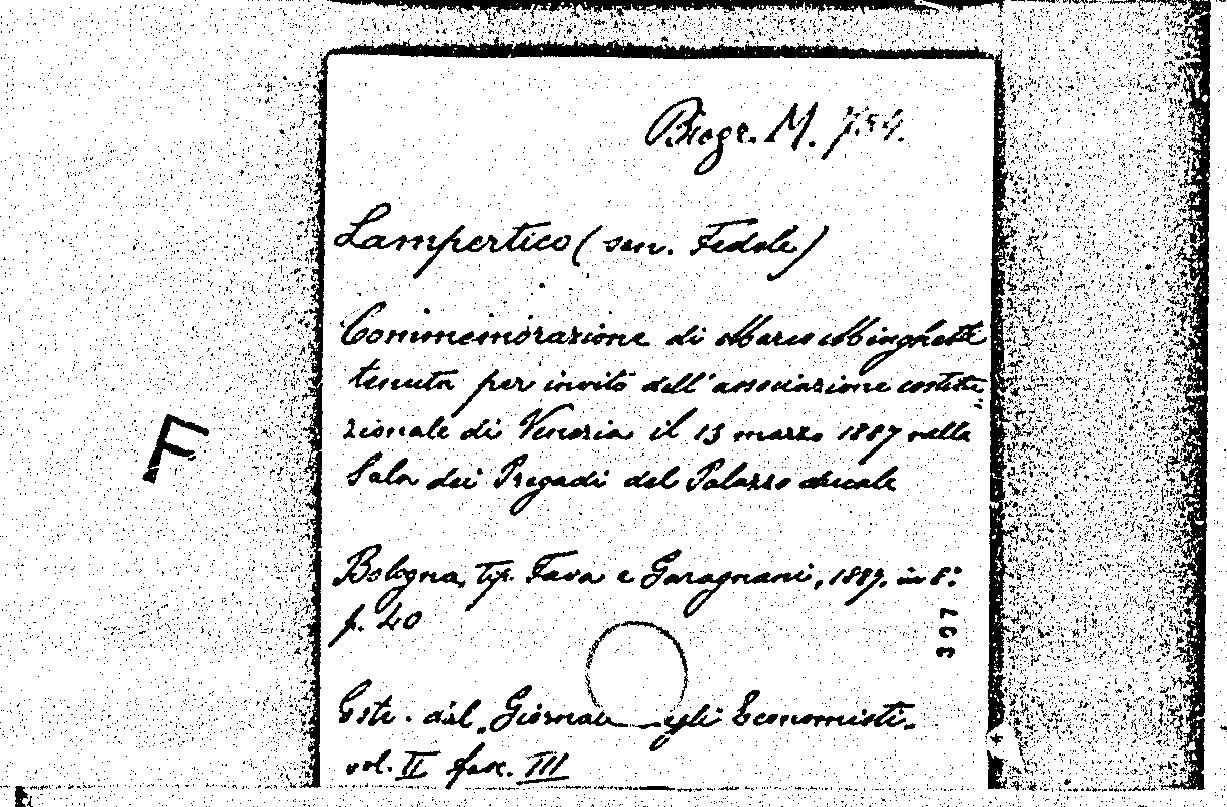 Biogr. M. 734.
Lampertico (sen. Fedele)
Commemorazione di Marco Minghetti
tenuta per invito dell'associazione costitu
zionale di Venezia il 13 marzo 1887 nella
Sala dei Pregadi del Palazzo ducale
F
Bologna, tip. Fava e Garagnani, 1887. in 8º
p. 40
307
Estr. dal „Giornale degli Economisti„
vol. II fasc. III